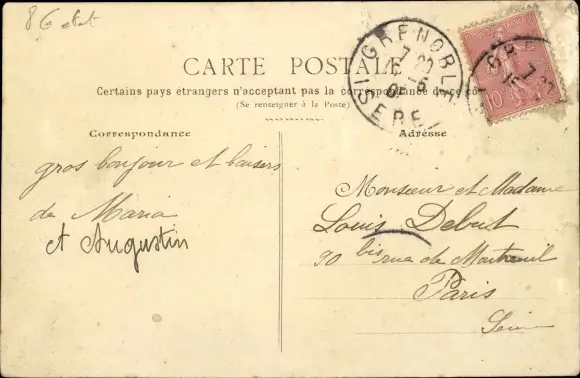 CARTE POSTALE
Certains pays étrangers n'acceptent pas la correspondance de ce cô
(Se renseigner à la Poste)
Correspondance
Adresse
GRENOBLE
ISERE
10
gros bonjour et baisers
de Maria
et Augustin
Monsieur et Madame
Louis Debut
90 bis rue de Montreuil
Paris
Seine